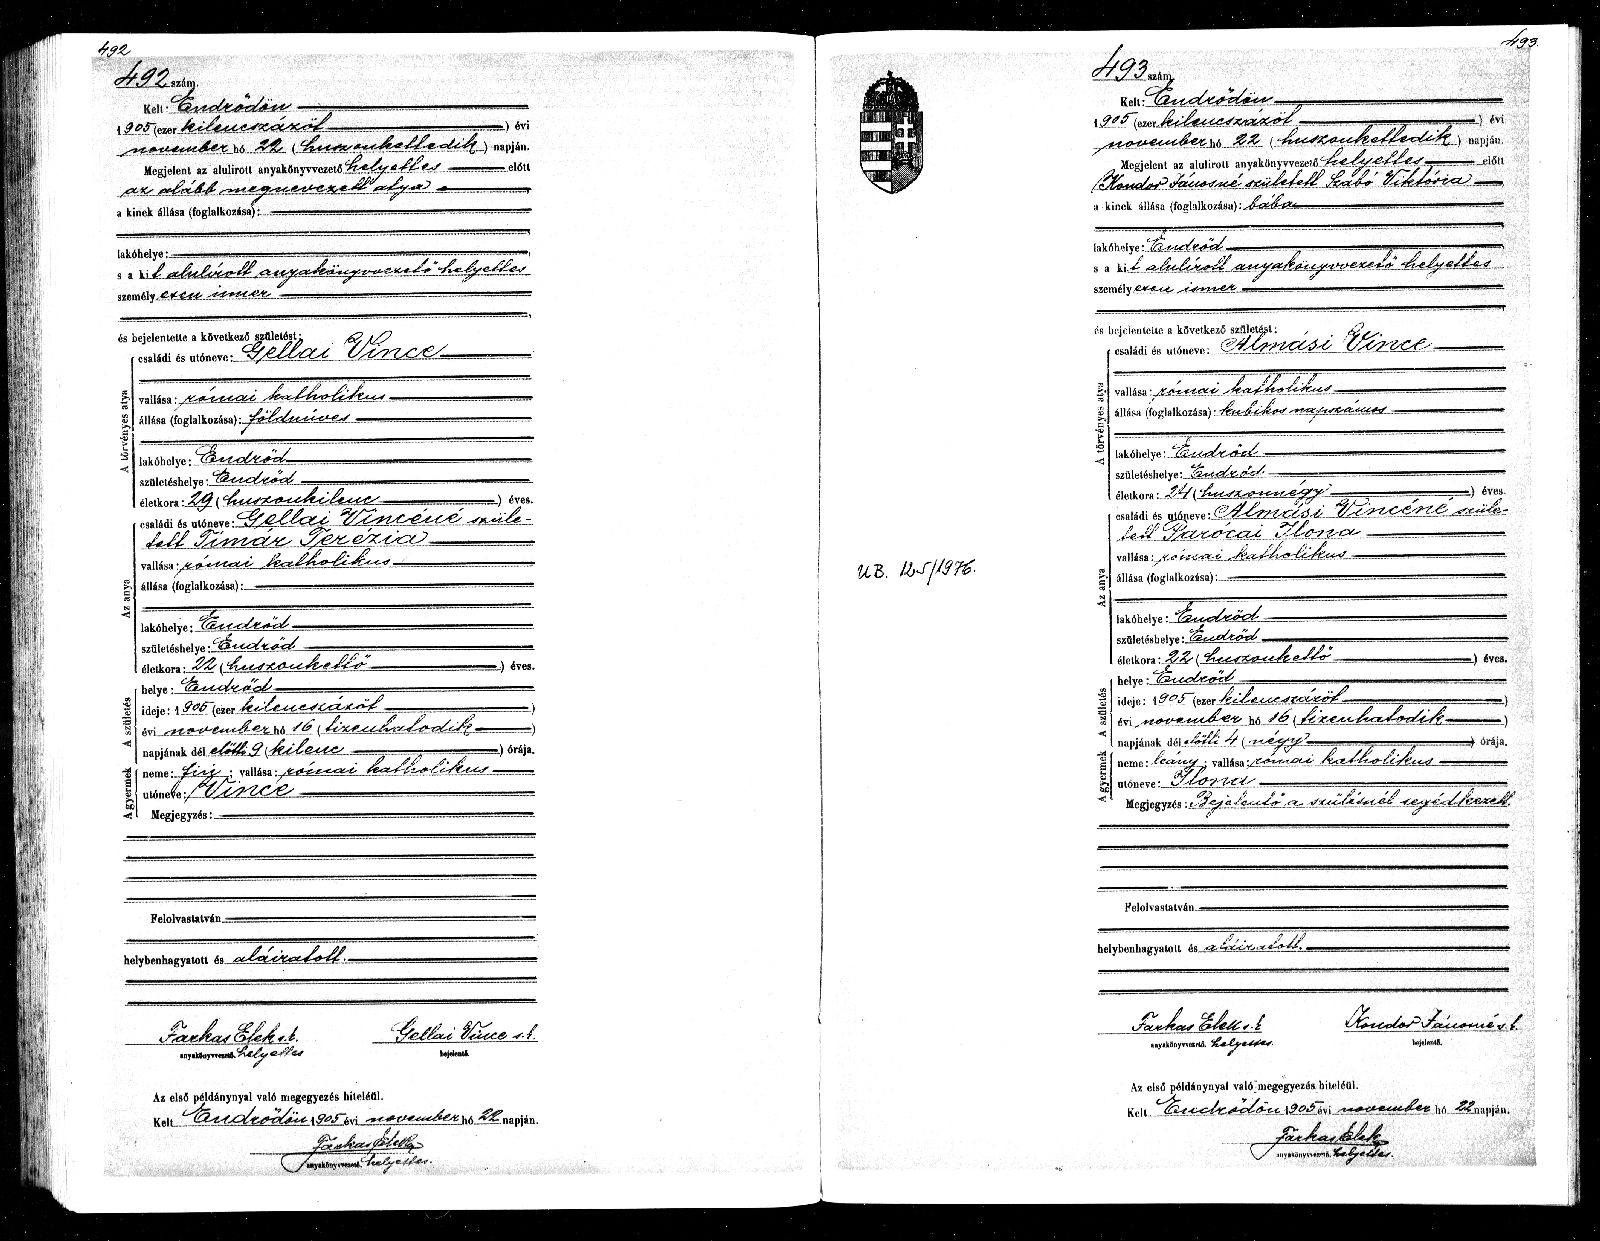 492
492 szám.
Kelt: Endrődön
1905 (ezer kilenczszázöt) évi
november hó 22 (huszonkettedik) napján.
Megjelent az alulirott anyakönyvvezető helyettes előtt
az alább megnevezett atya
a kinek állása (foglalkozása):
lakóhelye:
s a kit alulírott anyakönyvvezető helyettes
személyesen ismer
és bejelentette a következő születést:
A törvényes atya
családi és utóneve: Gellai Vince
vallása: római katholikus
állása (foglalkozása): földmíves
lakóhelye: Endrőd
születéshelye: Endrőd
életkora: 29 (huszonkilenc) éves.
Az anya
családi és utóneve: Gellai Vincéné szüle-
tett Tímár Terézia
vallása: római katholikus
állása (foglalkozása):
lakóhelye: Endrőd
születéshelye: Endrőd
életkora: 22 (huszonkettő) éves.
A születés
helye: Endrőd
ideje: 1905 (ezer kilencszázöt)
évi november hó 16 (tizenhatodik)
napjának dél előtti 9 (kilenc) órája.
A gyermek
neme: fiú; vallása: római katholikus
utóneve: Vince
Megjegyzés:
Felolvastatván
helybenhagyatott és aláiratott.
Farkas Elek s.k. Gellai Vince s.k.
anyakönyvvezető. helyettes bejelentő.
Az első példánynyal való megegyezés hiteléül.
Kelt Endrődön 1905 évi november hó 22 napján.
Farkas Elek
anyakönyvvezető. helyettes.
493.
493 szám
Kelt: Endrődön
1905 (ezer kilencszázöt) évi
november hó 22 (huszonkettedik) napján.
Megjelent az alulirott anyakönyvvezető helyettes előtt
Kondor Jánosné született Szabó Viktória
a kinek állása (foglalkozása): bába
lakóhelye: Endrőd
s a kit alulírott anyakönyvvezető helyettes
személyesen ismer
és bejelentette a következő születést:
A törvényes atya
családi és utóneve: Almási Vince
vallása: római katholikus
állása (foglalkozása): kubikos napszámos
lakóhelye: Endrőd
születéshelye: Endrőd
életkora: 24 (huszonnégy) éves.
Az anya
családi és utóneve: Almási Vincéné szüle-
tett Ilona
vallása: római katholikus
állása (foglalkozása):
lakóhelye: Endrőd
születéshelye: Endrőd
életkora: 22 (huszonkettő) éves.
A születés
helye: Endrőd
ideje: 1905 (ezer kilencszázöt)
évi november hó 16 (tizenhatodik)
napjának dél előtti 4 (négy) órája.
A gyermek
neme: leány; vallása: római katholikus
utóneve: Ilona
Megjegyzés: Bejelentő a szülésnél segédkezett.
Felolvastatván
helybenhagyatott és aláiratott.
Farkas Elek s.k. Kondor Jánosné s.k.
anyakönyvvezető. helyettes. bejelentő.
Az első példánynyal való megegyezés hiteléül.
Kelt Endrődön 1905 évi november hó 22 napján.
Farkas Elek
anyakönyvvezető. helyettes.
UB. 125/1976.